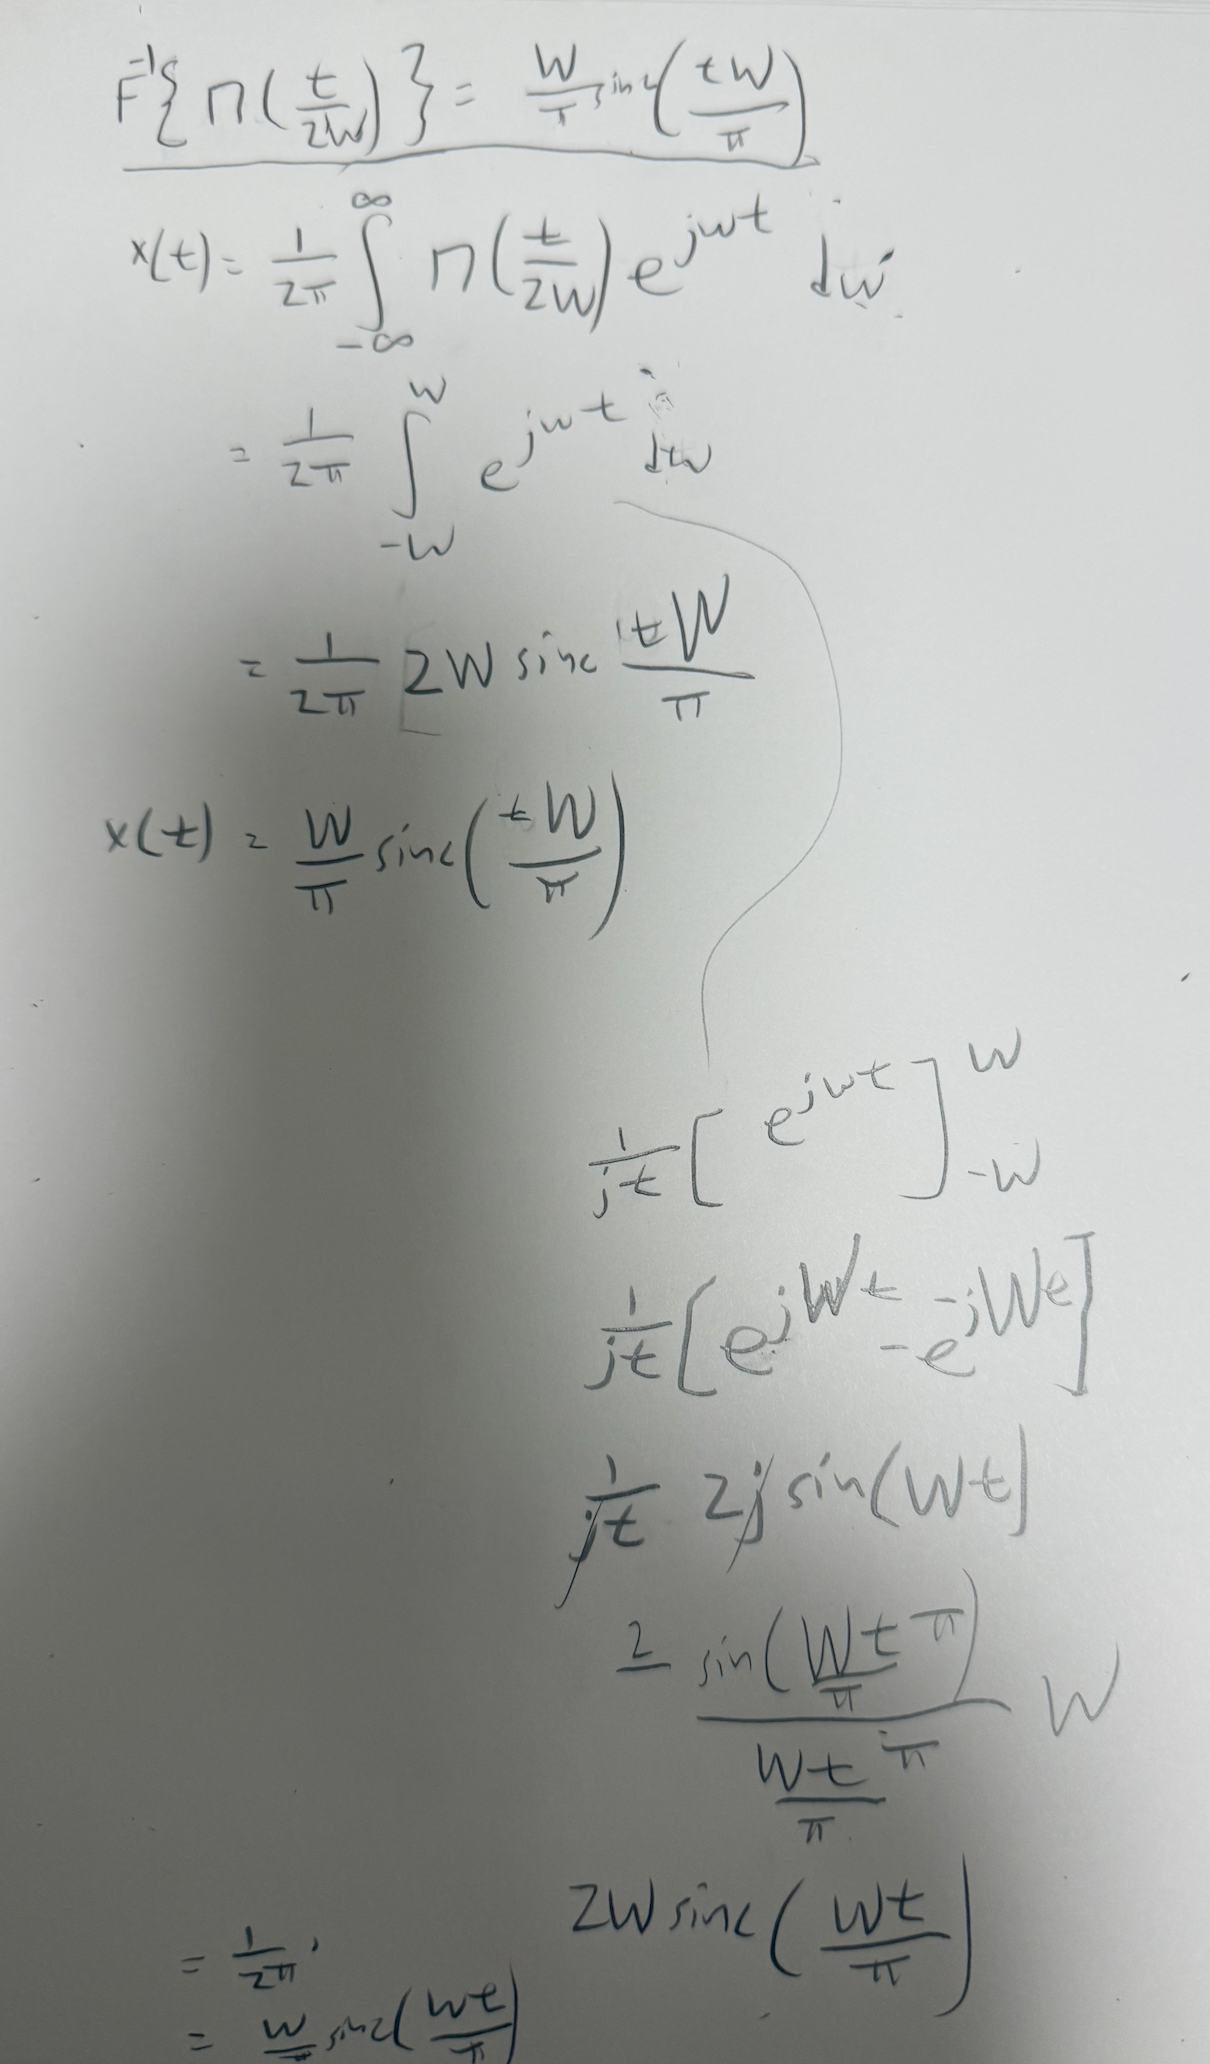 F⁻¹{ Π(t/2W) } = W/π sinc(tW/π)
x(t) = 1/2π ∫_{-∞}^{∞} Π(t/2W) e^{jwt} dw
= 1/2π ∫_{-W}^{W} e^{jwt} dw
= 1/2π 2W sinc tW/π
x(t) = W/π sinc(tW/π)
1/jt [ e^{jwt} ]_{-W}^{W}
1/jt [e^{jWt} - e^{-jWt}]
1/jt 2j sin(Wt)
2 sin(Wt/π π) / (Wt/π π) W
2W sinc(Wt/π)
= 1/2π ·
= W/π sinc(Wt/π)